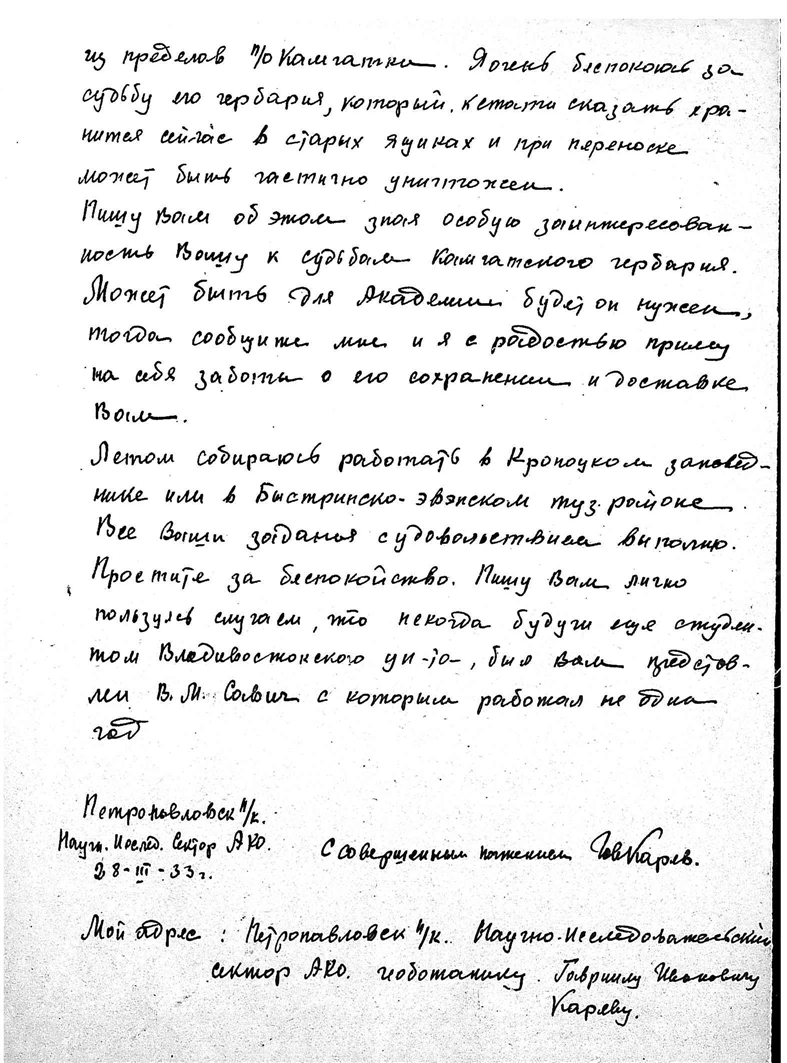 из пределов п/о Камчатки. Я очень беспокоюсь за
судьбу его гербария, который, кстати сказать хра-
нится сейчас в старых ящиках и при переноске
может быть частично уничтожен.
Пишу Вам об этом зная особую заинтересован-
ность Вашу к судьбам Камчатского гербария.
Может быть для Академии будет он нужен,
тогда сообщите мне и я с радостью приму
на себя заботы о его сохранении и доставке
Вам.
Летом собираюсь работать в Кроноцком заповед-
нике или в Быстринско-эвэнском туз. районе.
Все Ваши заданья с удовольствием выполню.
Простите за беспокойство. Пишу Вам лично
пользуясь случаем, что некогда будучи еще студен-
том Владивостокского ун-та, был Вам представ-
лен В. М. Савич с которым работал не один
год
Петропавловск п/к.
Научн. Исслед. Сектор АКО.
28-III-33 г.
С совершенным почтением Карев.
Мой адрес: Петропавловск п/к. Научно-Исследовательский
сектор АКО. геоботанику. Гавриилу Ивановичу
Кареву.